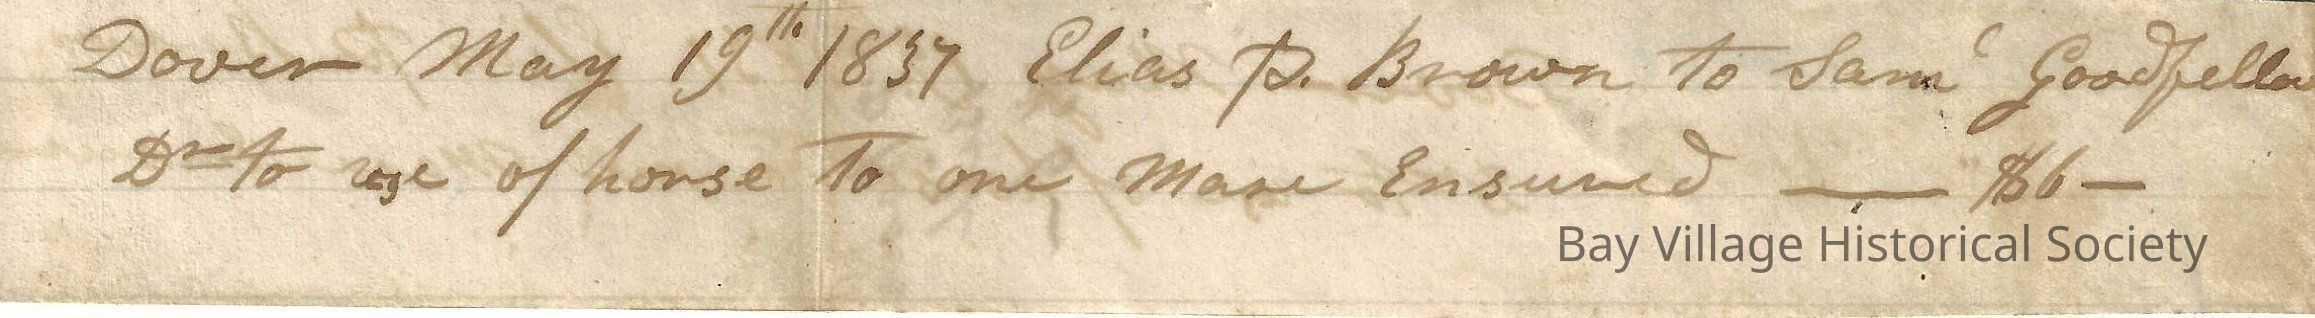 Dover May 19th 1837 Elias P. Brown to Saml Goodfellow
Dr to use of horse To one Mare Ensured — $6 —
Bay Village Historical Society